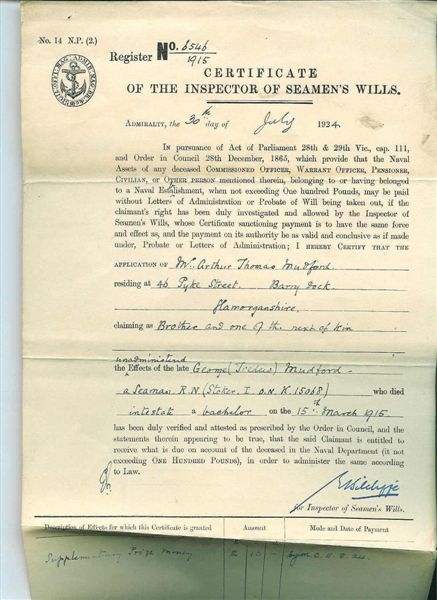 No. 14 N.P. (2.)
Register No. 6546
1915
CERTIFICATE
OF THE INSPECTOR OF SEAMEN'S WILLS.
ADMIRALTY, the 30th day of July 1924.
IN pursuance of Act of Parliament 28th & 29th Vic., cap. 111,
and Order in Council 28th December, 1865, which provide that the Naval
Assets of any deceased COMMISSIONED OFFICER, WARRANT OFFICER, PENSIONER,
CIVILIAN, or OTHER PERSON mentioned therein, belonging to or having belonged
to a Naval Establishment, when not exceeding One hundred Pounds, may be paid
without Letters of Administration or Probate of Will being taken out, if the
claimant's right has been duly investigated and allowed by the Inspector
of Seamen's Wills, whose Certificate sanctioning payment is to have the same force
and effect as, and the payment on its authority be as valid and conclusive as if made
under, Probate or Letters of Administration; I HEREBY CERTIFY THAT THE
APPLICATION OF Mr. Arthur Thomas Mudford.
residing at 46 Pyke Street. Barry Dock.
Glamorganshire.
claiming as Brother and one of the next of kin
unadministered
the Effects of the late George Mudford -
a Seaman R.N (Stoker. I O.N. K. 15068) who died
intestate a bachelor on the 15th March 1915
has been duly verified and attested as prescribed by the Order in Council, and the
statements therein appearing to be true, that the said Claimant is entitled to
receive what is due on account of the deceased in the Naval Department (it not
exceeding ONE HUNDRED POUNDS), in order to administer the same according
to Law.
for Inspector of Seamen's Wills.
Description of Effects for which this Certificate is granted
Amount
Mode and Date of Payment
Supplementary Prize Money
2 10 -